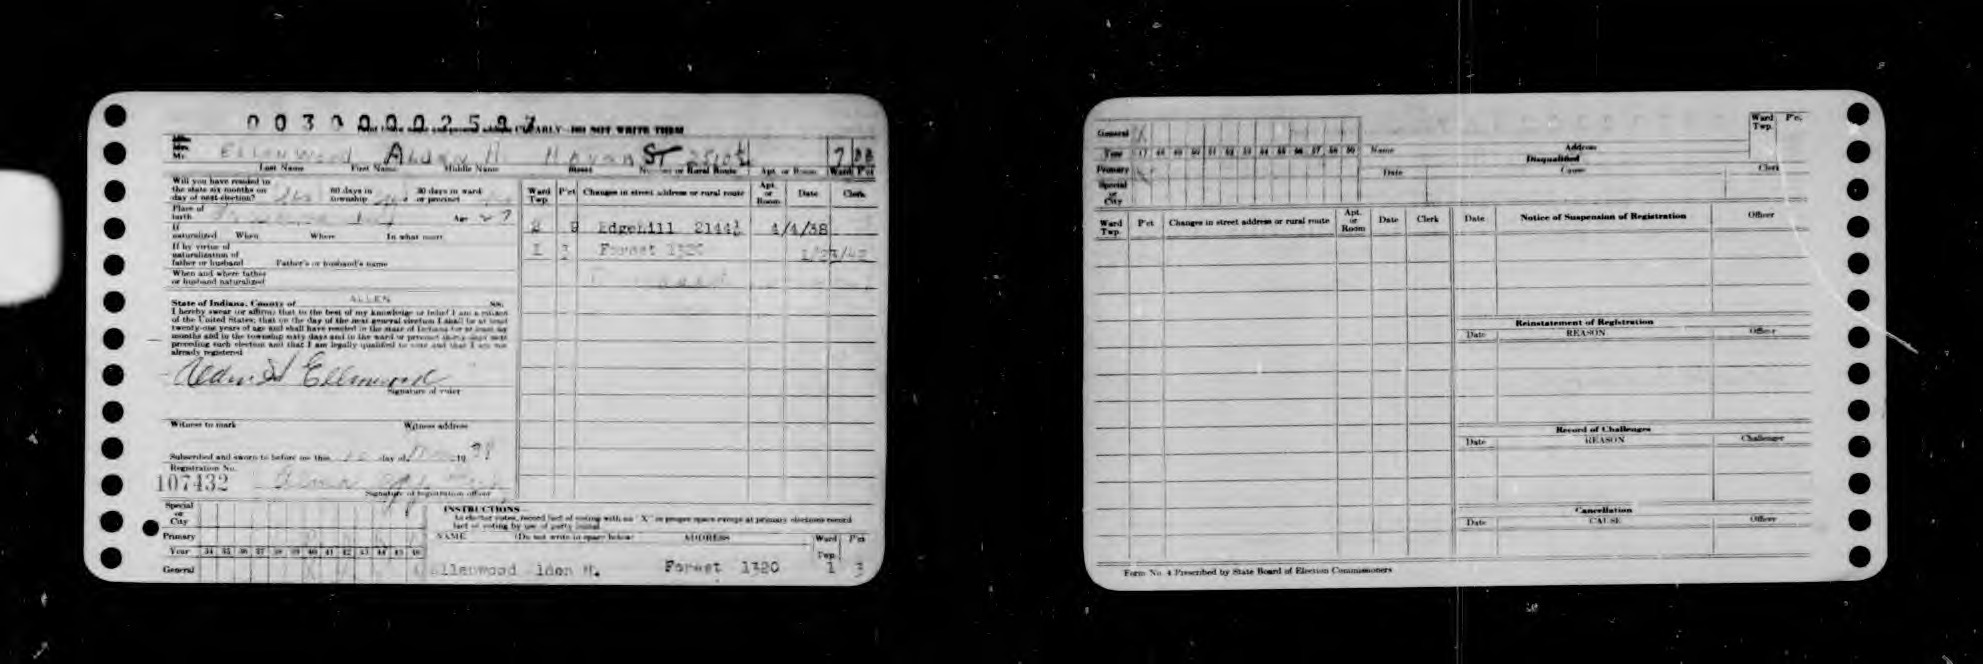 00300002597
Print Your name and present address CLEARLY—DO NOT WRITE THEM
Mrs.
Mr. Ellenwood Alden H. ST 2510½ 7
Last Name First Name Middle Name Street Number or Rural Route Apt. or Room Ward P'ct
Will you have resided in
the state six months on 60 days in 30 days in ward
day of next election? township or precinct
Place of
birth Age 27
If
naturalized When Where In what court
If by virtue of
naturalization of
father or husband Father's or husband's name
When and where father
or husband naturalized
State of Indiana, County of ALLEN ss.
I hereby swear (or affirm) that to the best of my knowledge or belief I am a citizen
of the United States; that on the day of the next general election I shall be at least
twenty-one years of age and shall have resided in the state of Indiana for at least six
months and in the township sixty days and in the ward or precinct thirty days next
preceding such election and that I am legally qualified to vote and that I am not
already registered
Alden H Ellenwood
Signature of voter
Witness to mark Witness address
Subscribed and sworn to before me this day of 19
Registration No.
107432
Signature of registration officer
Ward Twp. P'ct Changes in street address or rural route Apt. or Room Date Clerk
2 9 Edgehill 2144½ 4/4/38
1 3 Forest 1320
Special
or
City
Primary
Year 34 35 36 37 38 39 40 41 42 43 44 45 46
General
INSTRUCTIONS
As elector votes, record fact of voting with an "X" in proper space except at primary elections record
fact of voting by use of party initial
NAME (Do not write in space below) ADDRESS Ward Twp. P'ct
Ellenwood lden H. Forest 1320 1 3
General X
Year 47 48 49 50 51 52 53 54 55 56 57 58 59
Primary
Special
or
City
Name Address Ward Twp. P'ct.
Disqualified
Date Cause Clerk
Ward Twp. P'ct Changes in street address or rural route Apt. or Room Date Clerk
Date Notice of Suspension of Registration Officer
Reinstatement of Registration
Date REASON Officer
Record of Challenges
Date REASON Challenger
Cancellation
Date CAUSE Officer
Form No. 4 Prescribed by State Board of Election Commissioners